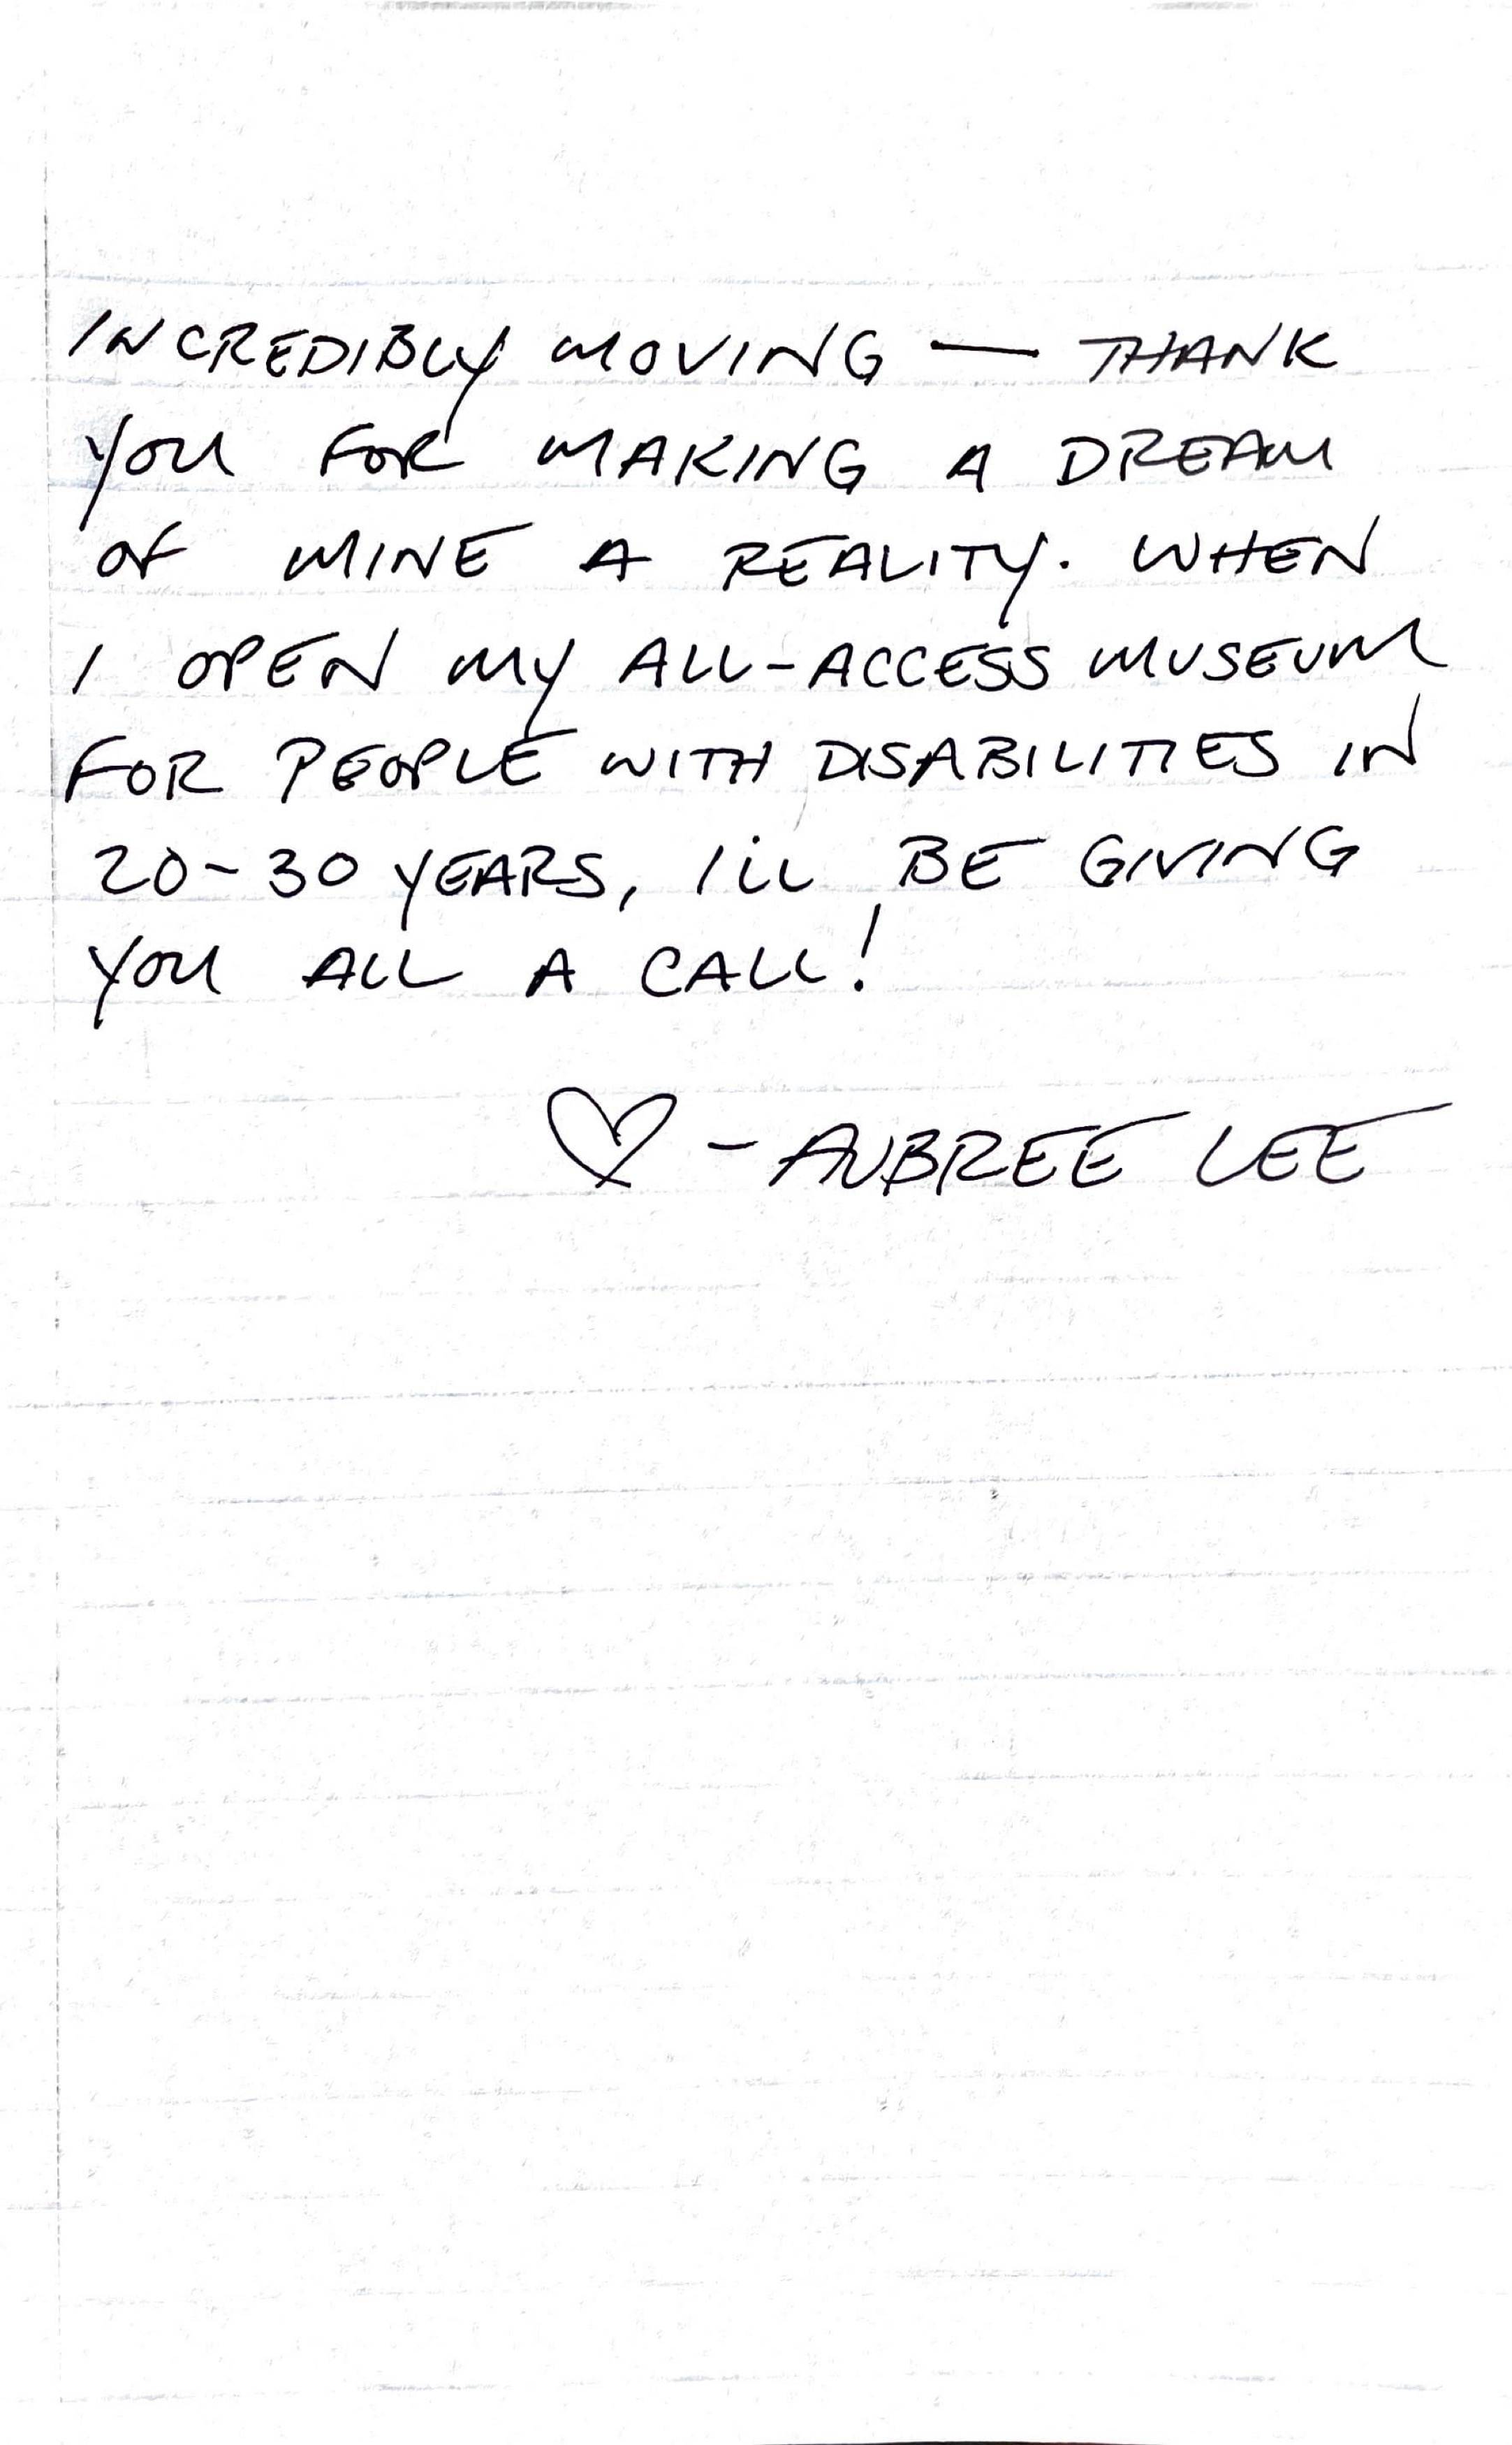 INCREDIBLY MOVING — THANK
YOU FOR MAKING A DREAM
OF MINE A REALITY. WHEN
I OPEN MY ALL-ACCESS MUSEUM
FOR PEOPLE WITH DISABILITIES IN
20-30 YEARS, I'LL BE GIVING
YOU ALL A CALL!
♡ - AUBREE LEE